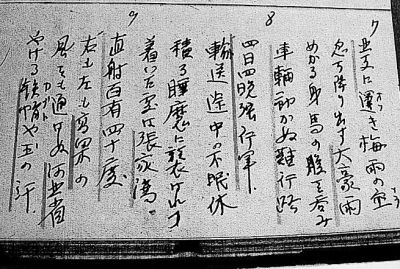 7
北支に遅き梅雨の空
忽ち降り出す大豪雨
めかる身馬の腹を呑み
車輪動かぬ難行路
8
四日四晩強行軍
輸送途中の不眠休
積る睡魔に襲はれつ
着いた処は張家湾
9
直射百有四十度
右も左も高粱の
風をも通さぬ河北省
やける鉄帽や玉の汗